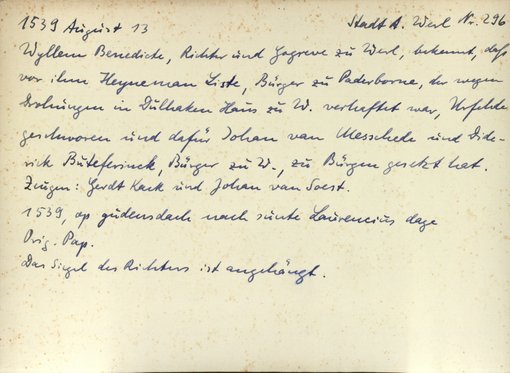 1539 August 13 Stadt A. Werl Nr. 296
Wyllem Benedicte, Richter und Gogreve zu Werl, bekennt, daß
vor ihm Heyneman Liste, Bürger zu Paderborne, der wegen
Drohungen in Dülhaken Haus zu W. verhaftet war, Urfehde
geschworen und dafür Johan van Messchede und Dide-
rick Buteferinck, Bürger zu W., zu Bürgen gesetzt hat.
Zeugen: Gerdt Kack und Johan van Soest.
1539, op gudensdach nach sunte Laurencius dage
Orig. Pap.
Das Siegel des Richters ist angehängt.